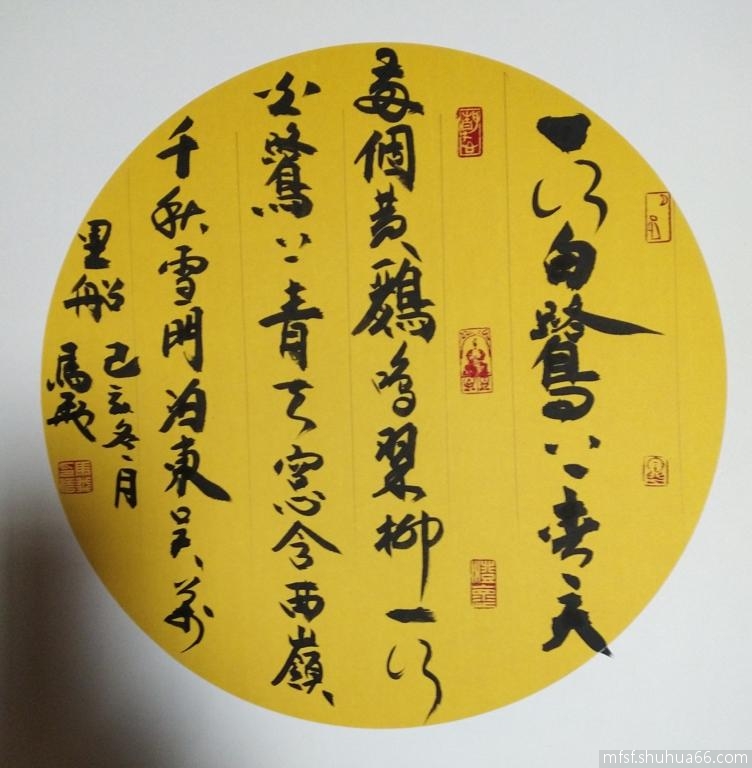 一行白鷺上青天
兩個黃鸝鳴翠柳一行
白鷺上青天窓含西嶺
千秋雪門泊東吳萬
里船
己亥冬月
馬
mfsf.shuhua66.com